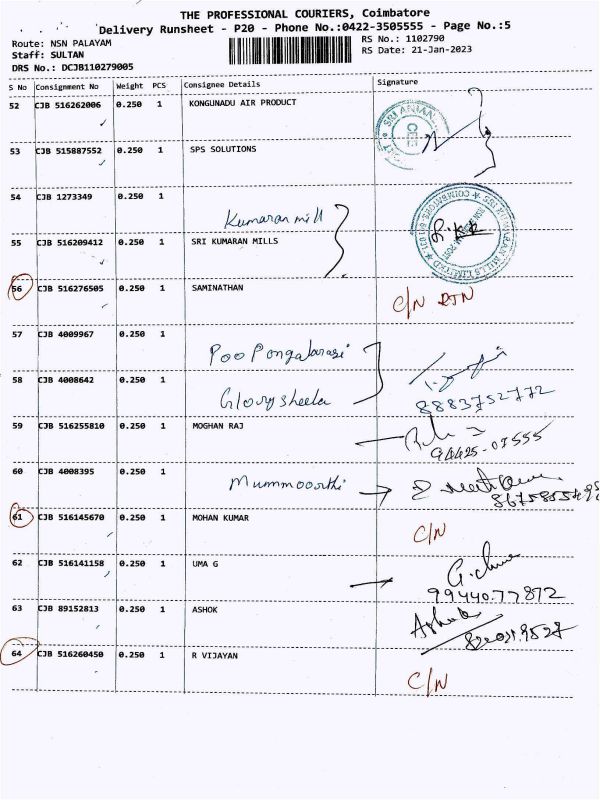 THE PROFESSIONAL COURIERS, Coimbatore
Delivery Runsheet - P20 - Phone No.:0422-3505555 - Page No.:5
Route: NSN PALAYAM
RS No.: 1102790
Staff: SULTAN
RS Date: 21-Jan-2023
DRS No.: DCJB110279005
S No Consignment No Weight PCS Consignee Details Signature
52 CJB 516262006 0.250 1 KONGUNADU AIR PRODUCT
53 CJB 515887552 0.250 1 SPS SOLUTIONS
54 CJB 1273349 0.250 1
Kumaran mill
55 CJB 516209412 0.250 1 SRI KUMARAN MILLS
56 CJB 516276505 0.250 1 SAMINATHAN
C/N RTN
57 CJB 4009967 0.250 1
Poo Pongalarasi
58 CJB 4008642 0.250 1
Glory sheela
8883752772
59 CJB 516255810 0.250 1 MOGHAN RAJ
94425-07555
60 CJB 4008395 0.250 1
Mummoorthi
61 CJB 516145670 0.250 1 MOHAN KUMAR
C/N
62 CJB 516141158 0.250 1 UMA G
9944077872
63 CJB 89152813 0.250 1 ASHOK
Ashok
64 CJB 516260450 0.250 1 R VIJAYAN
C/N